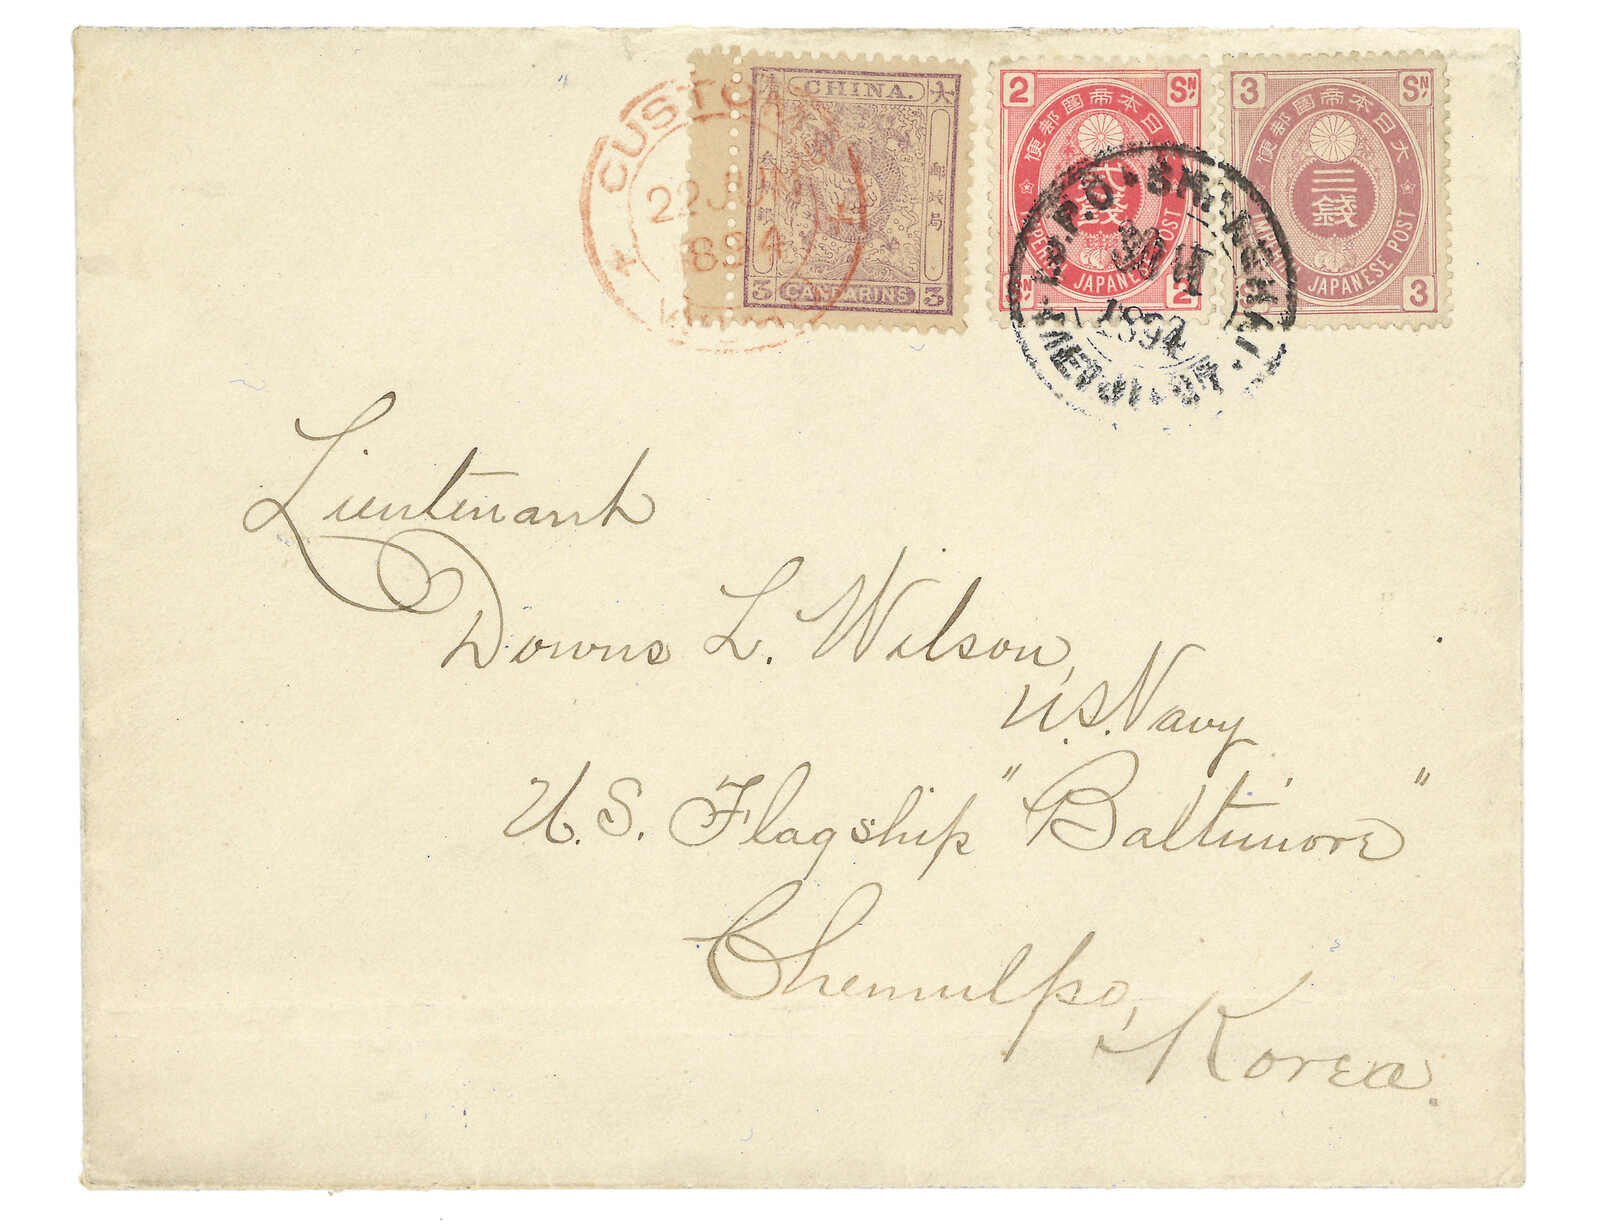 CUSTOMS
22 JUN
1894
大 CHINA. 清
郵政局
3 CANDARINS 3
2 SN.
大日本帝國郵便
貳錢
IMPERIAL JAPANESE POST
SN. 2
3 SN.
大日本帝國郵便
三錢
IMPERIAL JAPANESE POST
3
I.J.P.O SHANGHAI
30 VI
1894
MEIJI
Lieutenant
Downs L. Wilson,
U.S. Navy
U.S. Flagship "Baltimore"
Chemulpo,
Korea.